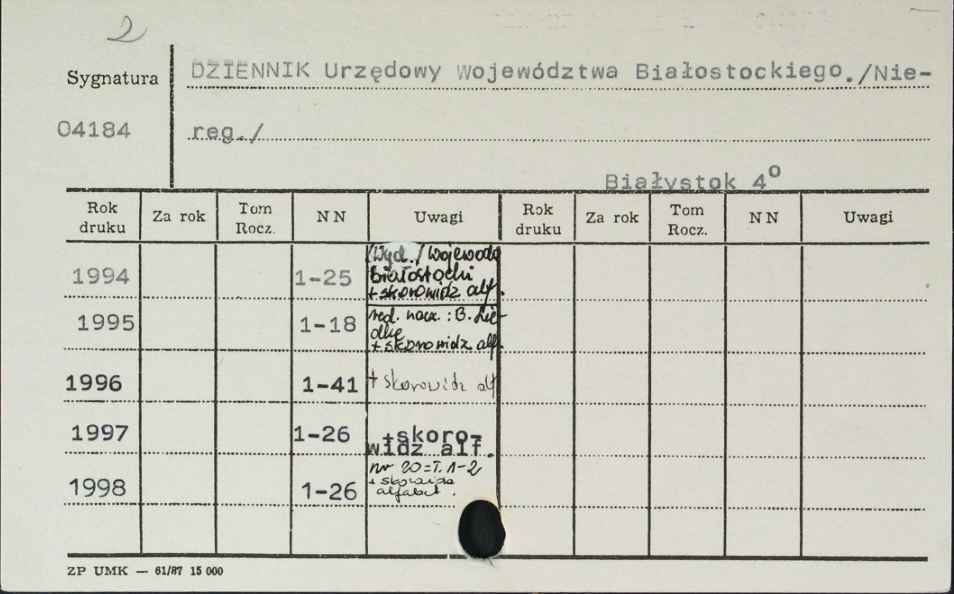 2
Sygnatura
DZIENNIK Urzędowy Województwa Białostockiego./Nie-
04184
reg./
Białystok 4°
Rok druku Za rok Tom Rocz. NN Uwagi Rok druku Za rok Tom Rocz. NN Uwagi
1994 1-25 /Wyd./ Wojewoda
Białostocki
+ skorowidz alf.
1995 1-18 red. nacz.: B.
+ skorowidz alf.
1996 1-41 + skorowidz alf
1997 1-26 +skoro-
widz alf.
1998 1-26 nr 20=T. 1-2
+ skorowidz
alfabet.
ZP UMK — 61/87 15 000